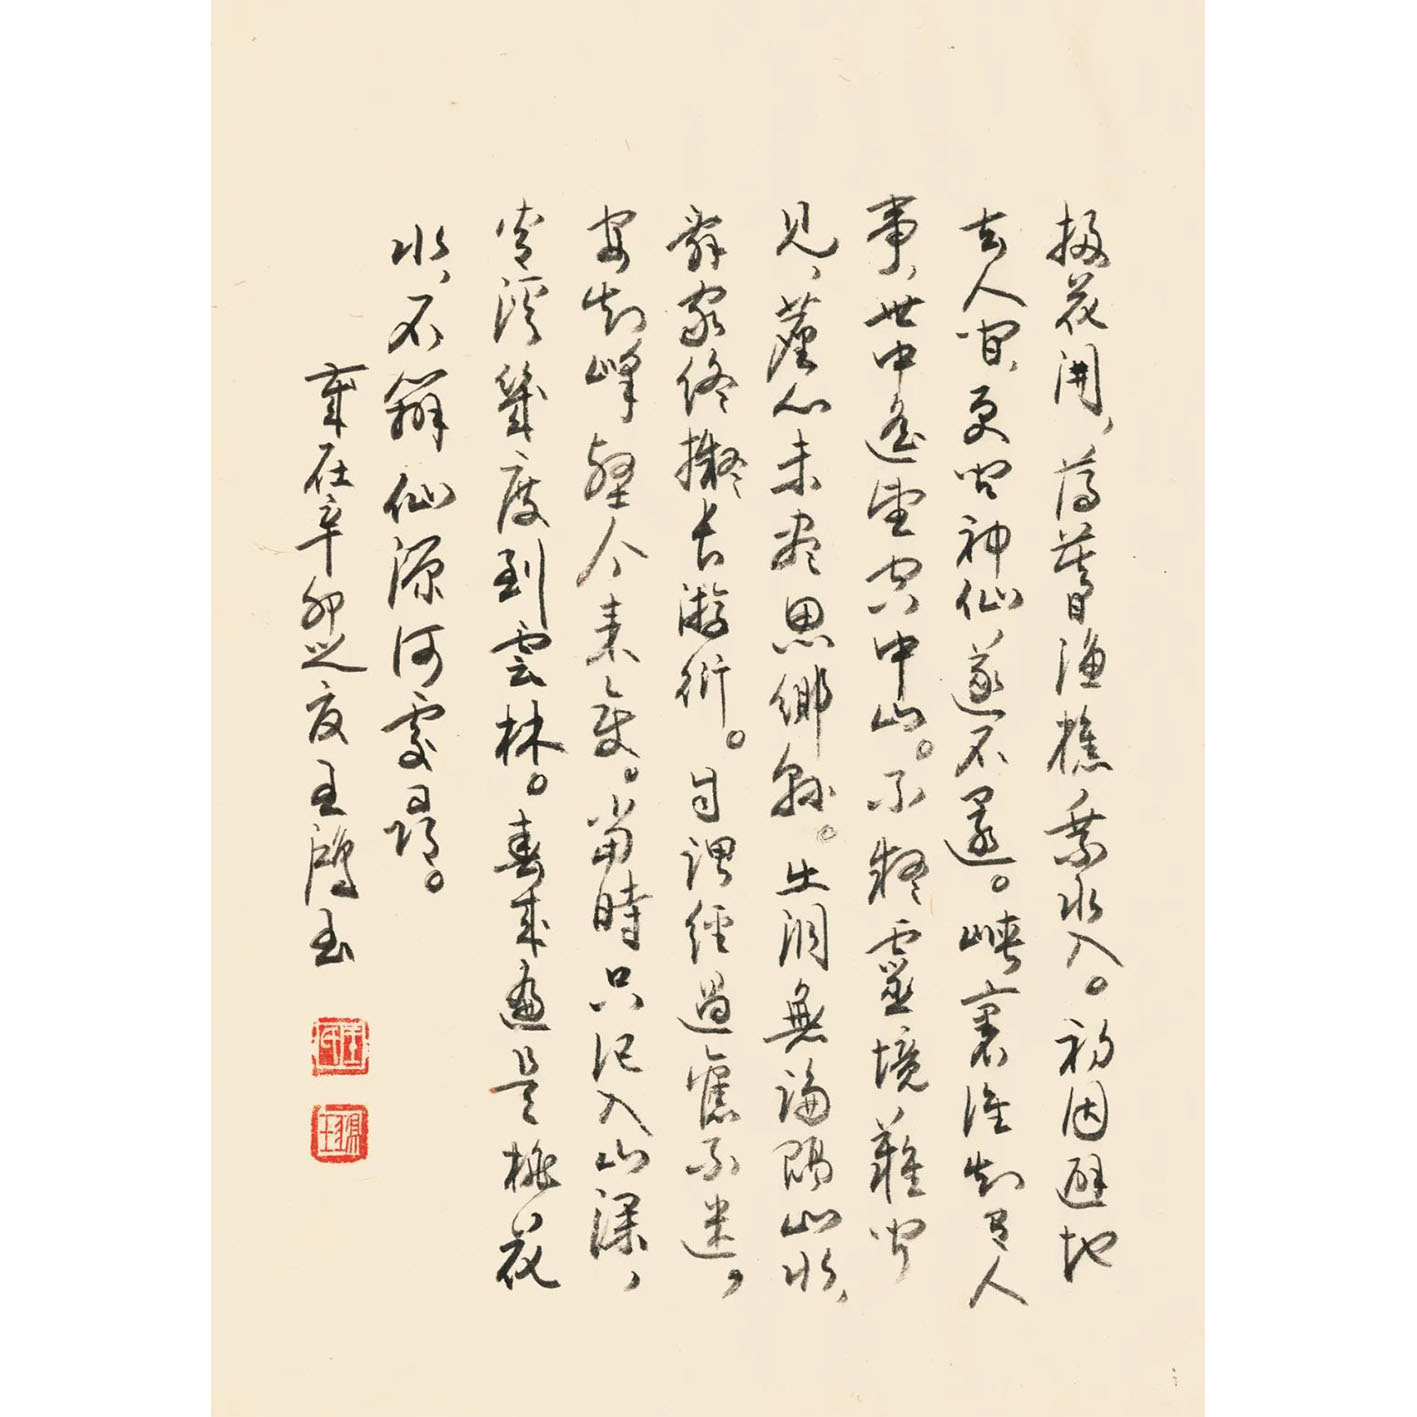 掃花開，薄暮漁樵乘水入。初因避地
去人間，更聞神仙遂不還。峽裏誰知有人
事，世中遙望空中山。不疑靈境難聞
見，塵心未盡思鄉縣。出洞無論隔山水，
辭家終擬長游衍。自謂經過舊不迷，
安知峰壑今來變。當時只記入山深，
青溪幾度到雲林。春來遍是桃花
水，不辨仙源何處尋。
歲在辛卯之夏王玉